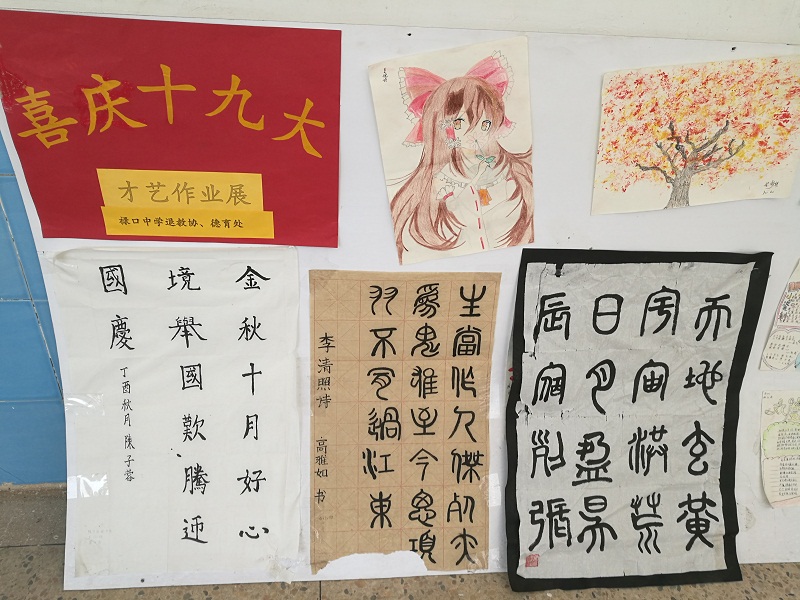 喜庆十九大
才艺作业展
禄口中学退教协、德育处
金秋十月好心
境舉國歡騰迎
國慶
丁酉秋月 陳子蓉
生當作人傑死亦
爲鬼雄至今思項
羽不肯過江東
李清照诗 高雅如 书
天地玄黃
宇宙洪荒
日月盈昃
辰宿列張